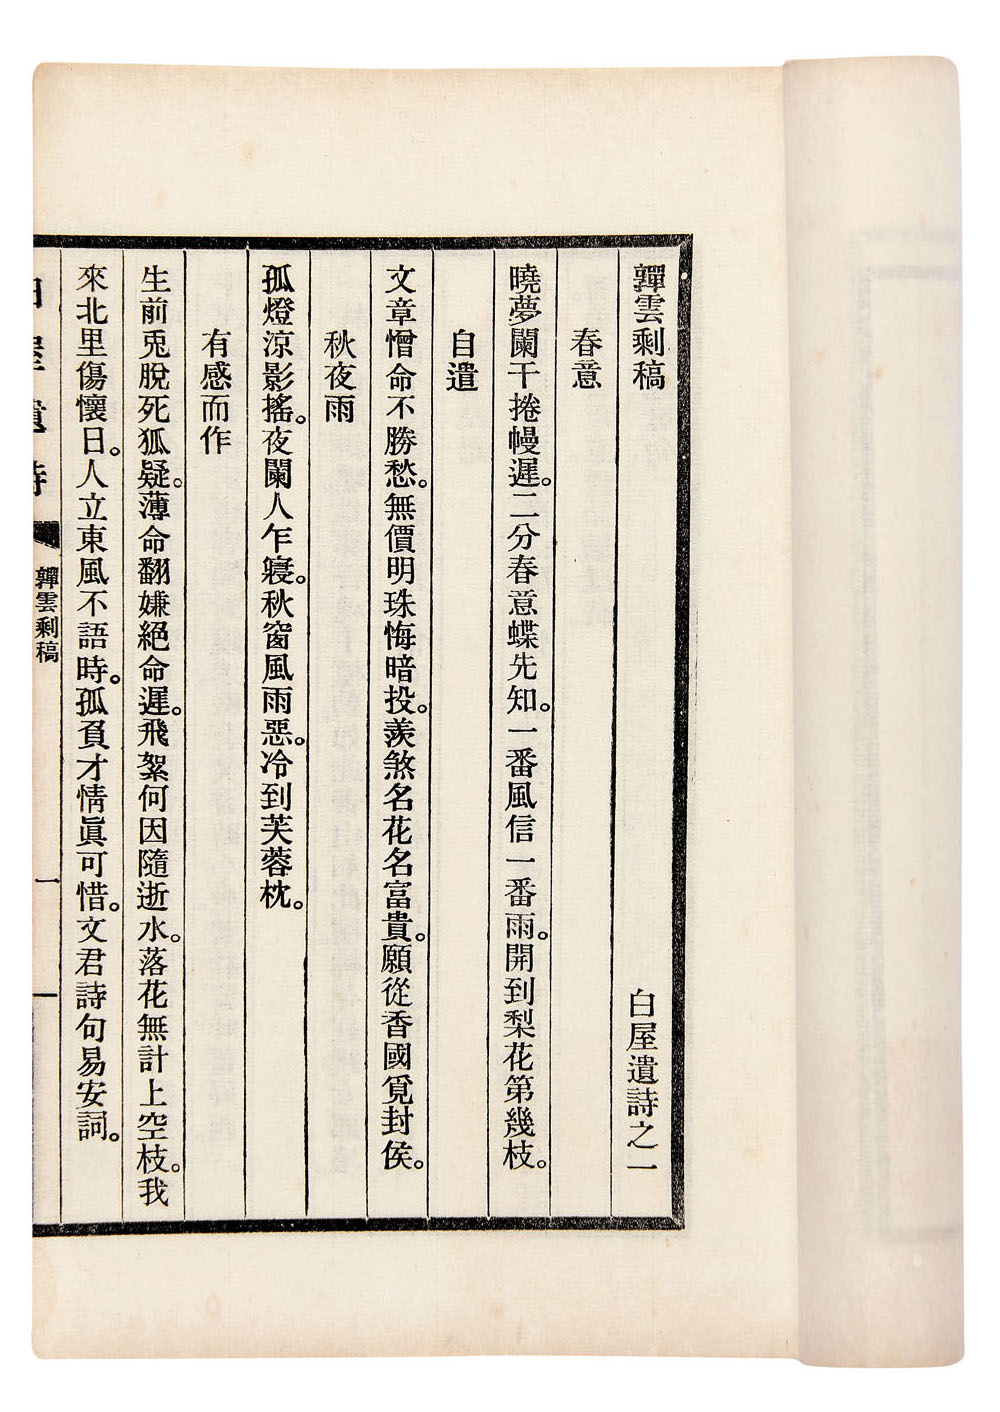 嚲雲剩稿　白屋遺詩之一
春意
曉夢闌干捲幔遲。二分春意蝶先知。一番風信一番雨。開到梨花第幾枝。
自遣
文章憎命不勝愁。無價明珠悔暗投。羨煞名花名富貴。願從香國覓封侯。
秋夜雨
孤燈涼影搖。夜闌人乍寢。秋窗風雨惡。冷到芙蓉枕。
有感而作
生前兎脫死狐疑。薄命翻嫌絕命遲。飛絮何因隨逝水。落花無計上空枝。我
來北里傷懷日。人立東風不語時。孤負才情眞可惜。文君詩句易安詞。
嚲雲剩稿　一